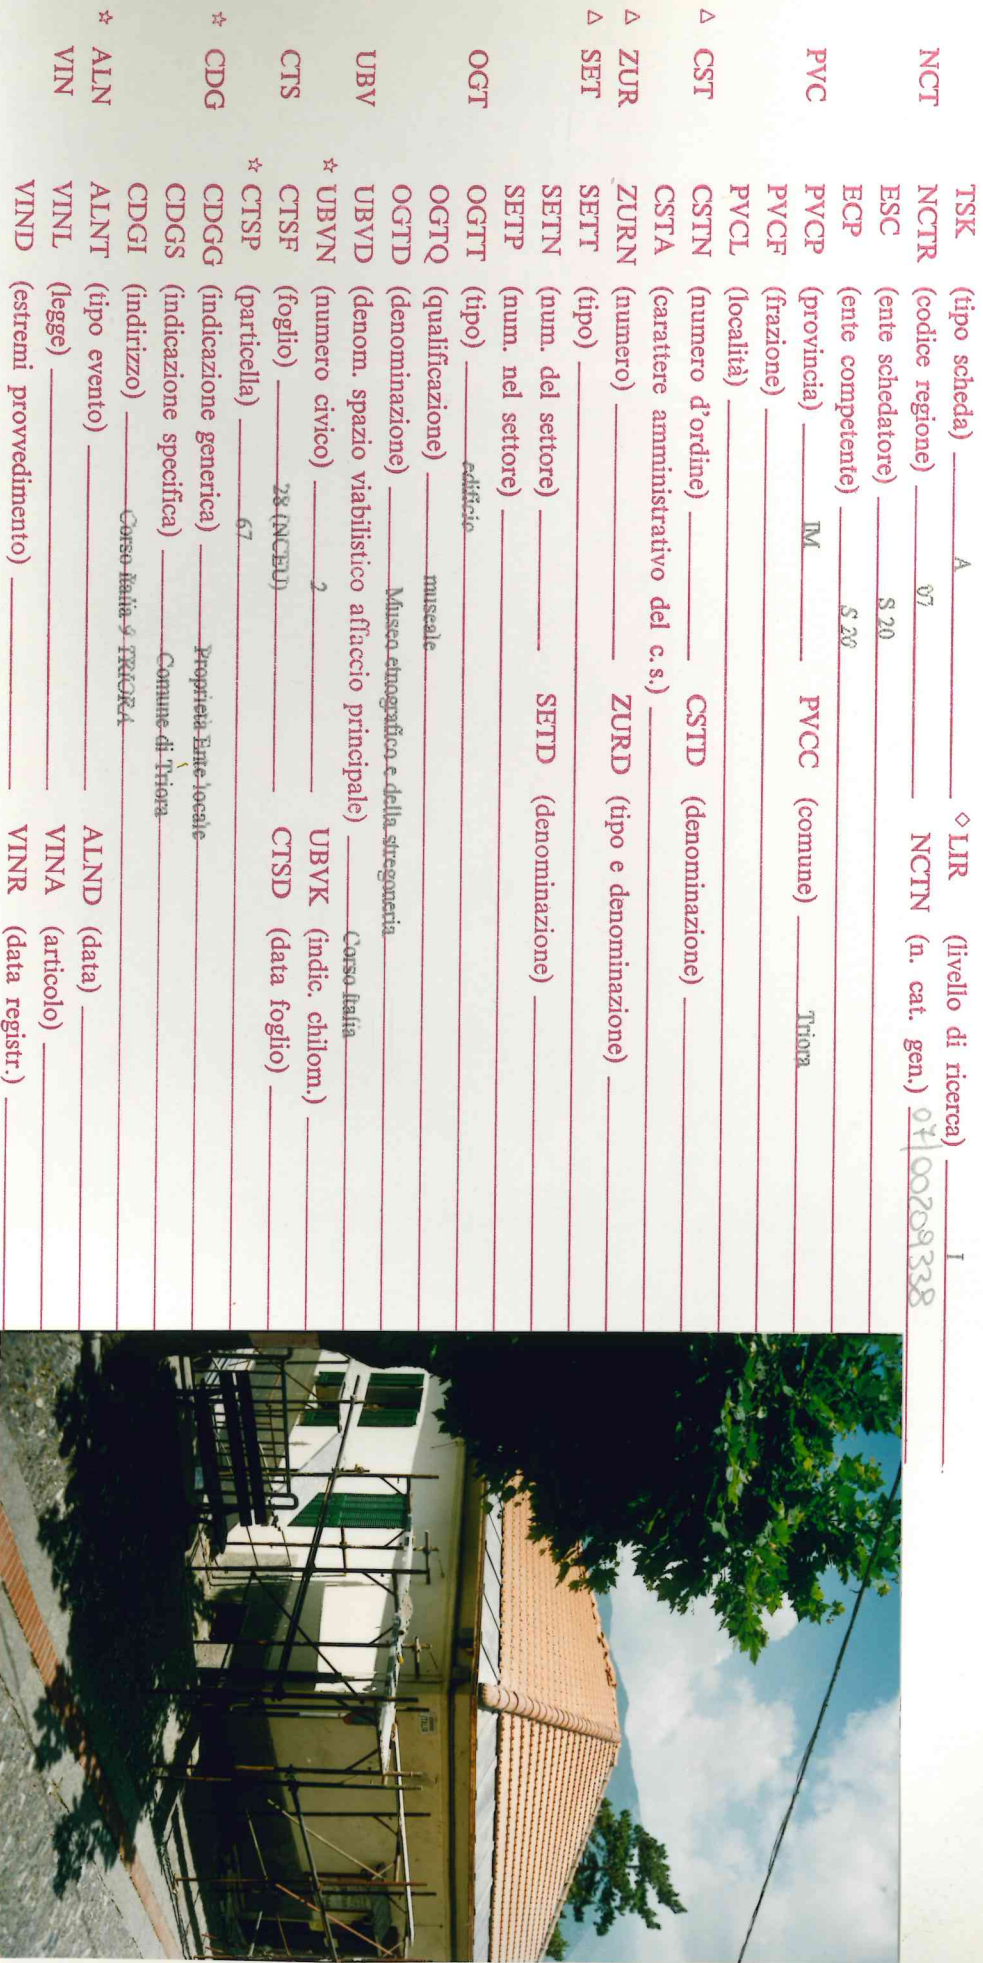 TSK (tipo scheda) A ◇ LIR (livello di ricerca) I
NCT NCTR (codice regione) 07 NCTN (n. cat. gen.) 07/00209338
ESC (ente schedatore) S 20
ECP (ente competente) S 20
PVC PVCP (provincia) IM PVCC (comune) Triora
PVCF (frazione)
PVCL (località)
△ CST CSTN (numero d'ordine) CSTD (denominazione)
CSTA (carattere amministrativo del c.s.)
△ ZUR ZURN (numero) ZURD (tipo e denominazione)
△ SET SETT (tipo)
SETN (num. del settore) SETD (denominazione)
SETP (num. nel settore)
OGT OGTT (tipo) edificio
OGTQ (qualificazione) museale
OGTD (denominazione) Museo etnografico e della stregoneria
UBV UBVD (denom. spazio viabilistico affaccio principale) Corso Italia
☆ UBVN (numero civico) 2 UBVK (indic. chilom.)
CTS CTSF (foglio) 28 (NCEU) CTSD (data foglio)
☆ CTSP (particella) 67
☆ CDG CDGG (indicazione generica) Proprietà Ente locale
CDGS (indicazione specifica) Comune di Triora
CDGI (indirizzo) Corso Italia 9 TRIORA
☆ ALN ALNT (tipo evento) ALND (data)
VIN VINL (legge) VINA (articolo)
VIND (estremi provvedimento) VINR (data registr.)
ITALIA